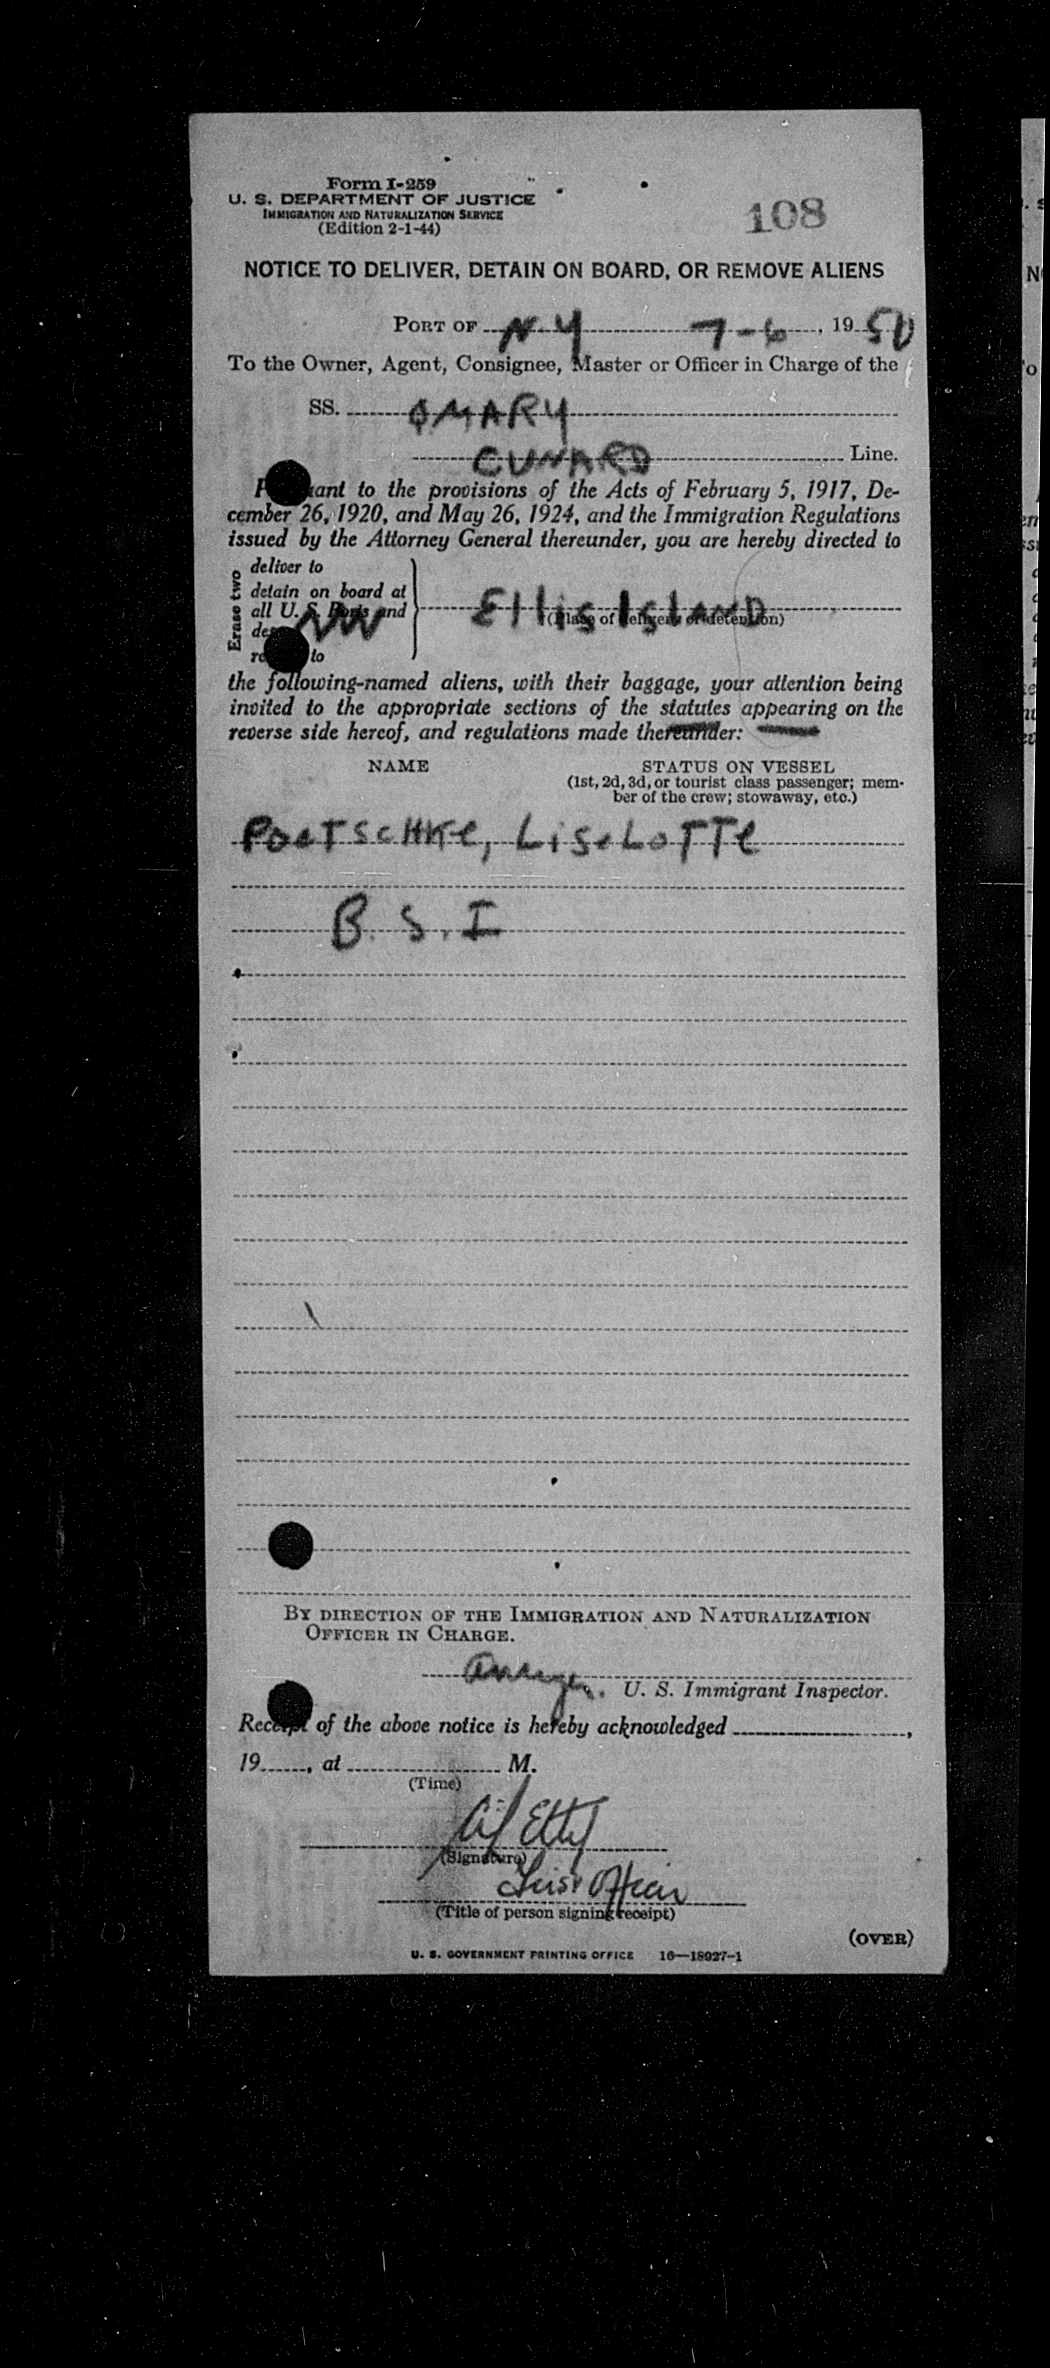 Form I-259
U. S. DEPARTMENT OF JUSTICE
IMMIGRATION AND NATURALIZATION SERVICE
(Edition 2-1-44)
108
NOTICE TO DELIVER, DETAIN ON BOARD, OR REMOVE ALIENS
PORT OF N.Y 7-6, 1950
To the Owner, Agent, Consignee, Master or Officer in Charge of the
SS. Q.MARY
CUNARD Line.
Pursuant to the provisions of the Acts of February 5, 1917, De-
cember 26, 1920, and May 26, 1924, and the Immigration Regulations
issued by the Attorney General thereunder, you are hereby directed to
Erase two
deliver to
detain on board at
all U. S. Ports and
to
Ellis Island
(Place of delivery or detention)
the following-named aliens, with their baggage, your attention being
invited to the appropriate sections of the statutes appearing on the
reverse side hereof, and regulations made thereunder:
NAME STATUS ON VESSEL
(1st, 2d, 3d, or tourist class passenger; mem-
ber of the crew; stowaway, etc.)
PoeTscHKe, LiseLoTTe
B. S. I
BY DIRECTION OF THE IMMIGRATION AND NATURALIZATION
OFFICER IN CHARGE.
U. S. Immigrant Inspector.
Receipt of the above notice is hereby acknowledged,
19, at M.
(Time)
(Signature)
Officer
(Title of person signing receipt)
(OVER)
U. S. GOVERNMENT PRINTING OFFICE 16—18927-1